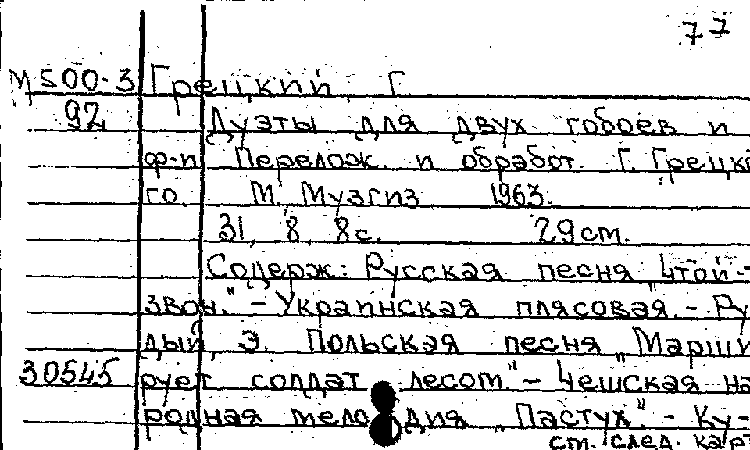 77
М500-3 Грецкий, Г.
92 Дуэты для двух гобоев и
ф-п Перелож. и обработ. Г. Грецко
го. М. Музгиз 1963.
31, 8, 8с. 29см.
Содерж: Русская песня "Что й-
звон." - Украинская плясовая. - Ру
дый, Э. Польская песня „Марши
30545 рует солдат лесом." - Чешская на
родная мелодия „Пастух". - Ку-
см. след. карт